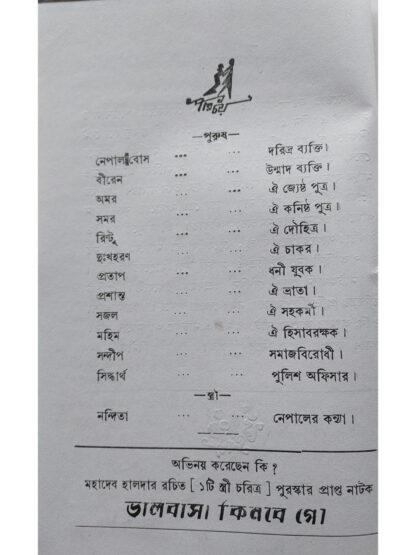 পরিচয়
—পুরুষ—
নেপাল বোস ... ... দরিদ্র ব্যক্তি।
বীরেন ... ... উন্মাদ ব্যক্তি।
অমর ... ... ঐ জ্যেষ্ঠ পুত্র।
সমর ... ... ঐ কনিষ্ঠ পুত্র।
রিন্টু ... ... ঐ দৌহিত্র।
দুঃখহরণ ... ... ঐ চাকর।
প্রতাপ ... ... ধনী যুবক।
প্রশান্ত ... ... ঐ ভ্রাতা।
সজল ... ... ঐ সহকর্মী।
মহিম ... ... ঐ হিসাবরক্ষক।
সন্দীপ ... ... সমাজবিরোধী।
সিদ্ধার্থ ... ... পুলিশ অফিসার।
—স্ত্রী—
নন্দিতা ... ... নেপালের কন্যা।
অভিনয় করেছেন কি ?
মহাদেব হালদার রচিত [ ১টি স্ত্রী চরিত্র ] পুরস্কার প্রাপ্ত নাটক
ভালবাসা কিনবে গো